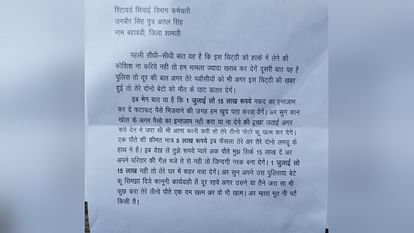 रिटायर्ड सिंचाई विभाग कर्मचारी
जगबीर सिंह पुत्र अतल सिंह
गाम बहावड़ी, जिला शामली
पहली सीधी-सीधी बात यह है कि इस चिट्ठी को हल्के में लेने की
कोशिश ना करिये नही तो हम मामला ज्यादा खराब कर देगें दूसरी बात यह है
पुलिस तो दूर की बात अगर तेरे पडौसीयों को भी अगर इस चिठ्ठी की खबर
हुई तो तेरे दोनो बेटो को मौत के घाट ऊतार देगें।
इब मेन बात या है कि 1 जुलाई लो 15 लाख रूपये नकद का इन्तजाम
कर दें फटाफट पैसे भिजवाने की जगह हम खुद पता करवा देगें। अर सुन कान
खोल के अगर पैसो का इन्तजाम नही करा या ना देने की इच्छा जताई अगर
रूपे देन मे जरा सी भी आना कानी करी तो तेरे तीनो पोटों कू खत्म कर देगें।
एक पौते की कीमत मात्र 5 लाख रूपये इब फैसला तेरे अर तेरे दोनो लमडू के
हाथ मे है। इब देख ले तुझे रूपये प्यारे अक पौते मुझ सिर्फ 15 लाख दें अर
अपने परिवार की गैल मजे ते रो नही तो जिन्दगी नरक बना देगें। 1 जुलाई लो
15 लाख नही तो तेरे घर मे कहर मचा देगें। अर सुन अपने उस पुलिसया बेटे
कू सिमझा दिये कानूनी कार्यवाही तै दूर रहये अगर उसने या तैने जरा सा भी
कुछ करा तेरे तीनो पोते एक दम खत्म अर वो भी खत्म। अर म्हारा मूत नी पटै
किसी पै।